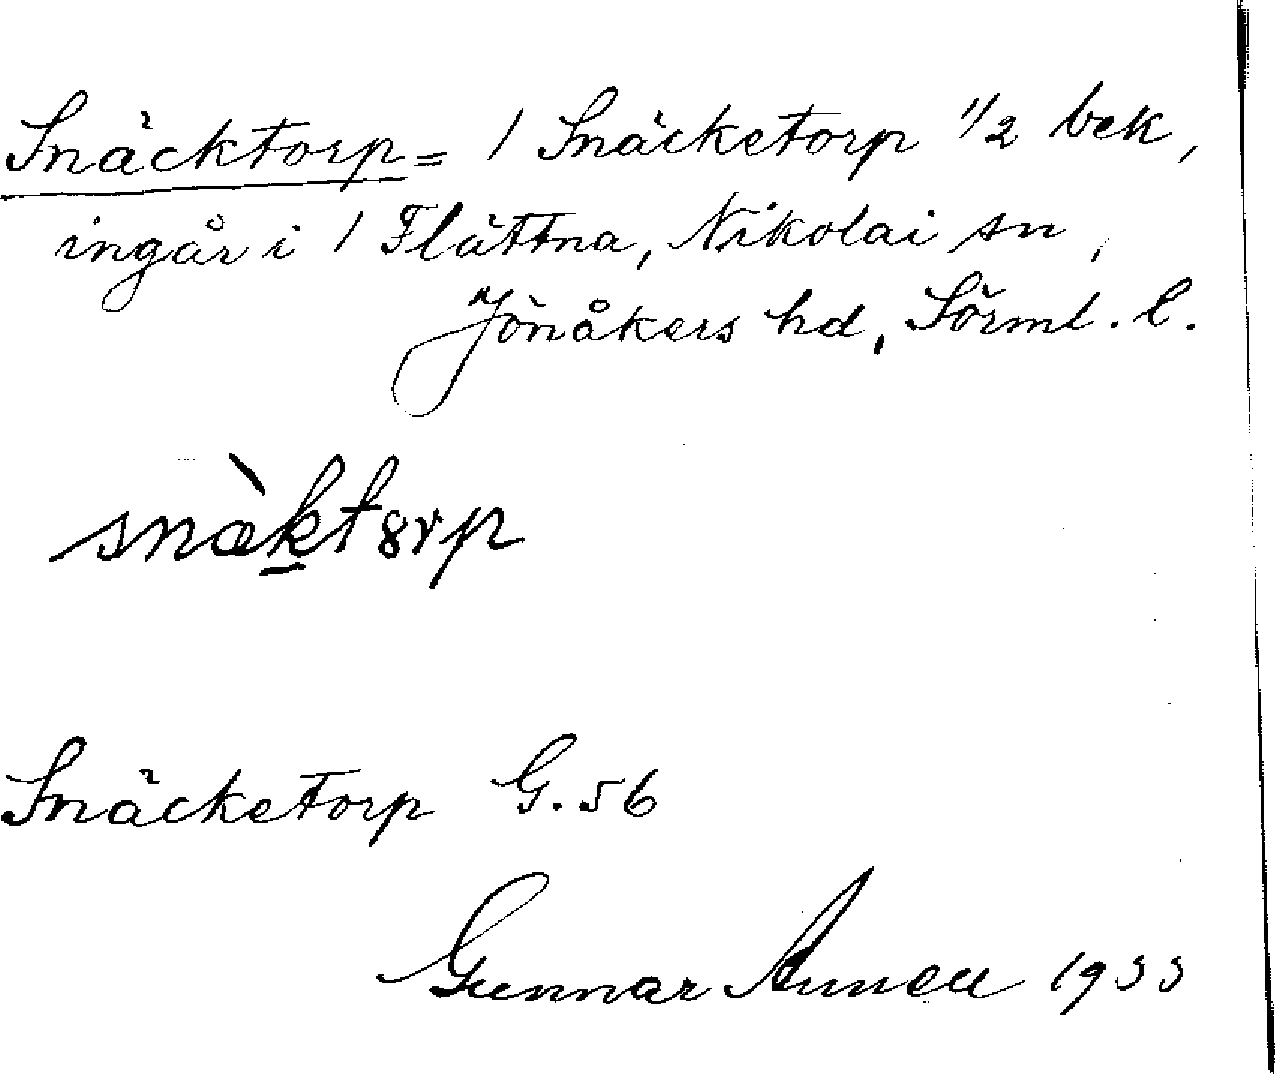 Snäcktorp = / Snäcketorp 1/2 bek,
ingår i / Flättna, Nikolai sn,
Jönåkers hd, Sörml. l.
snæ̀ktorp
Snäcketorp G. 56
Gunnar 1933